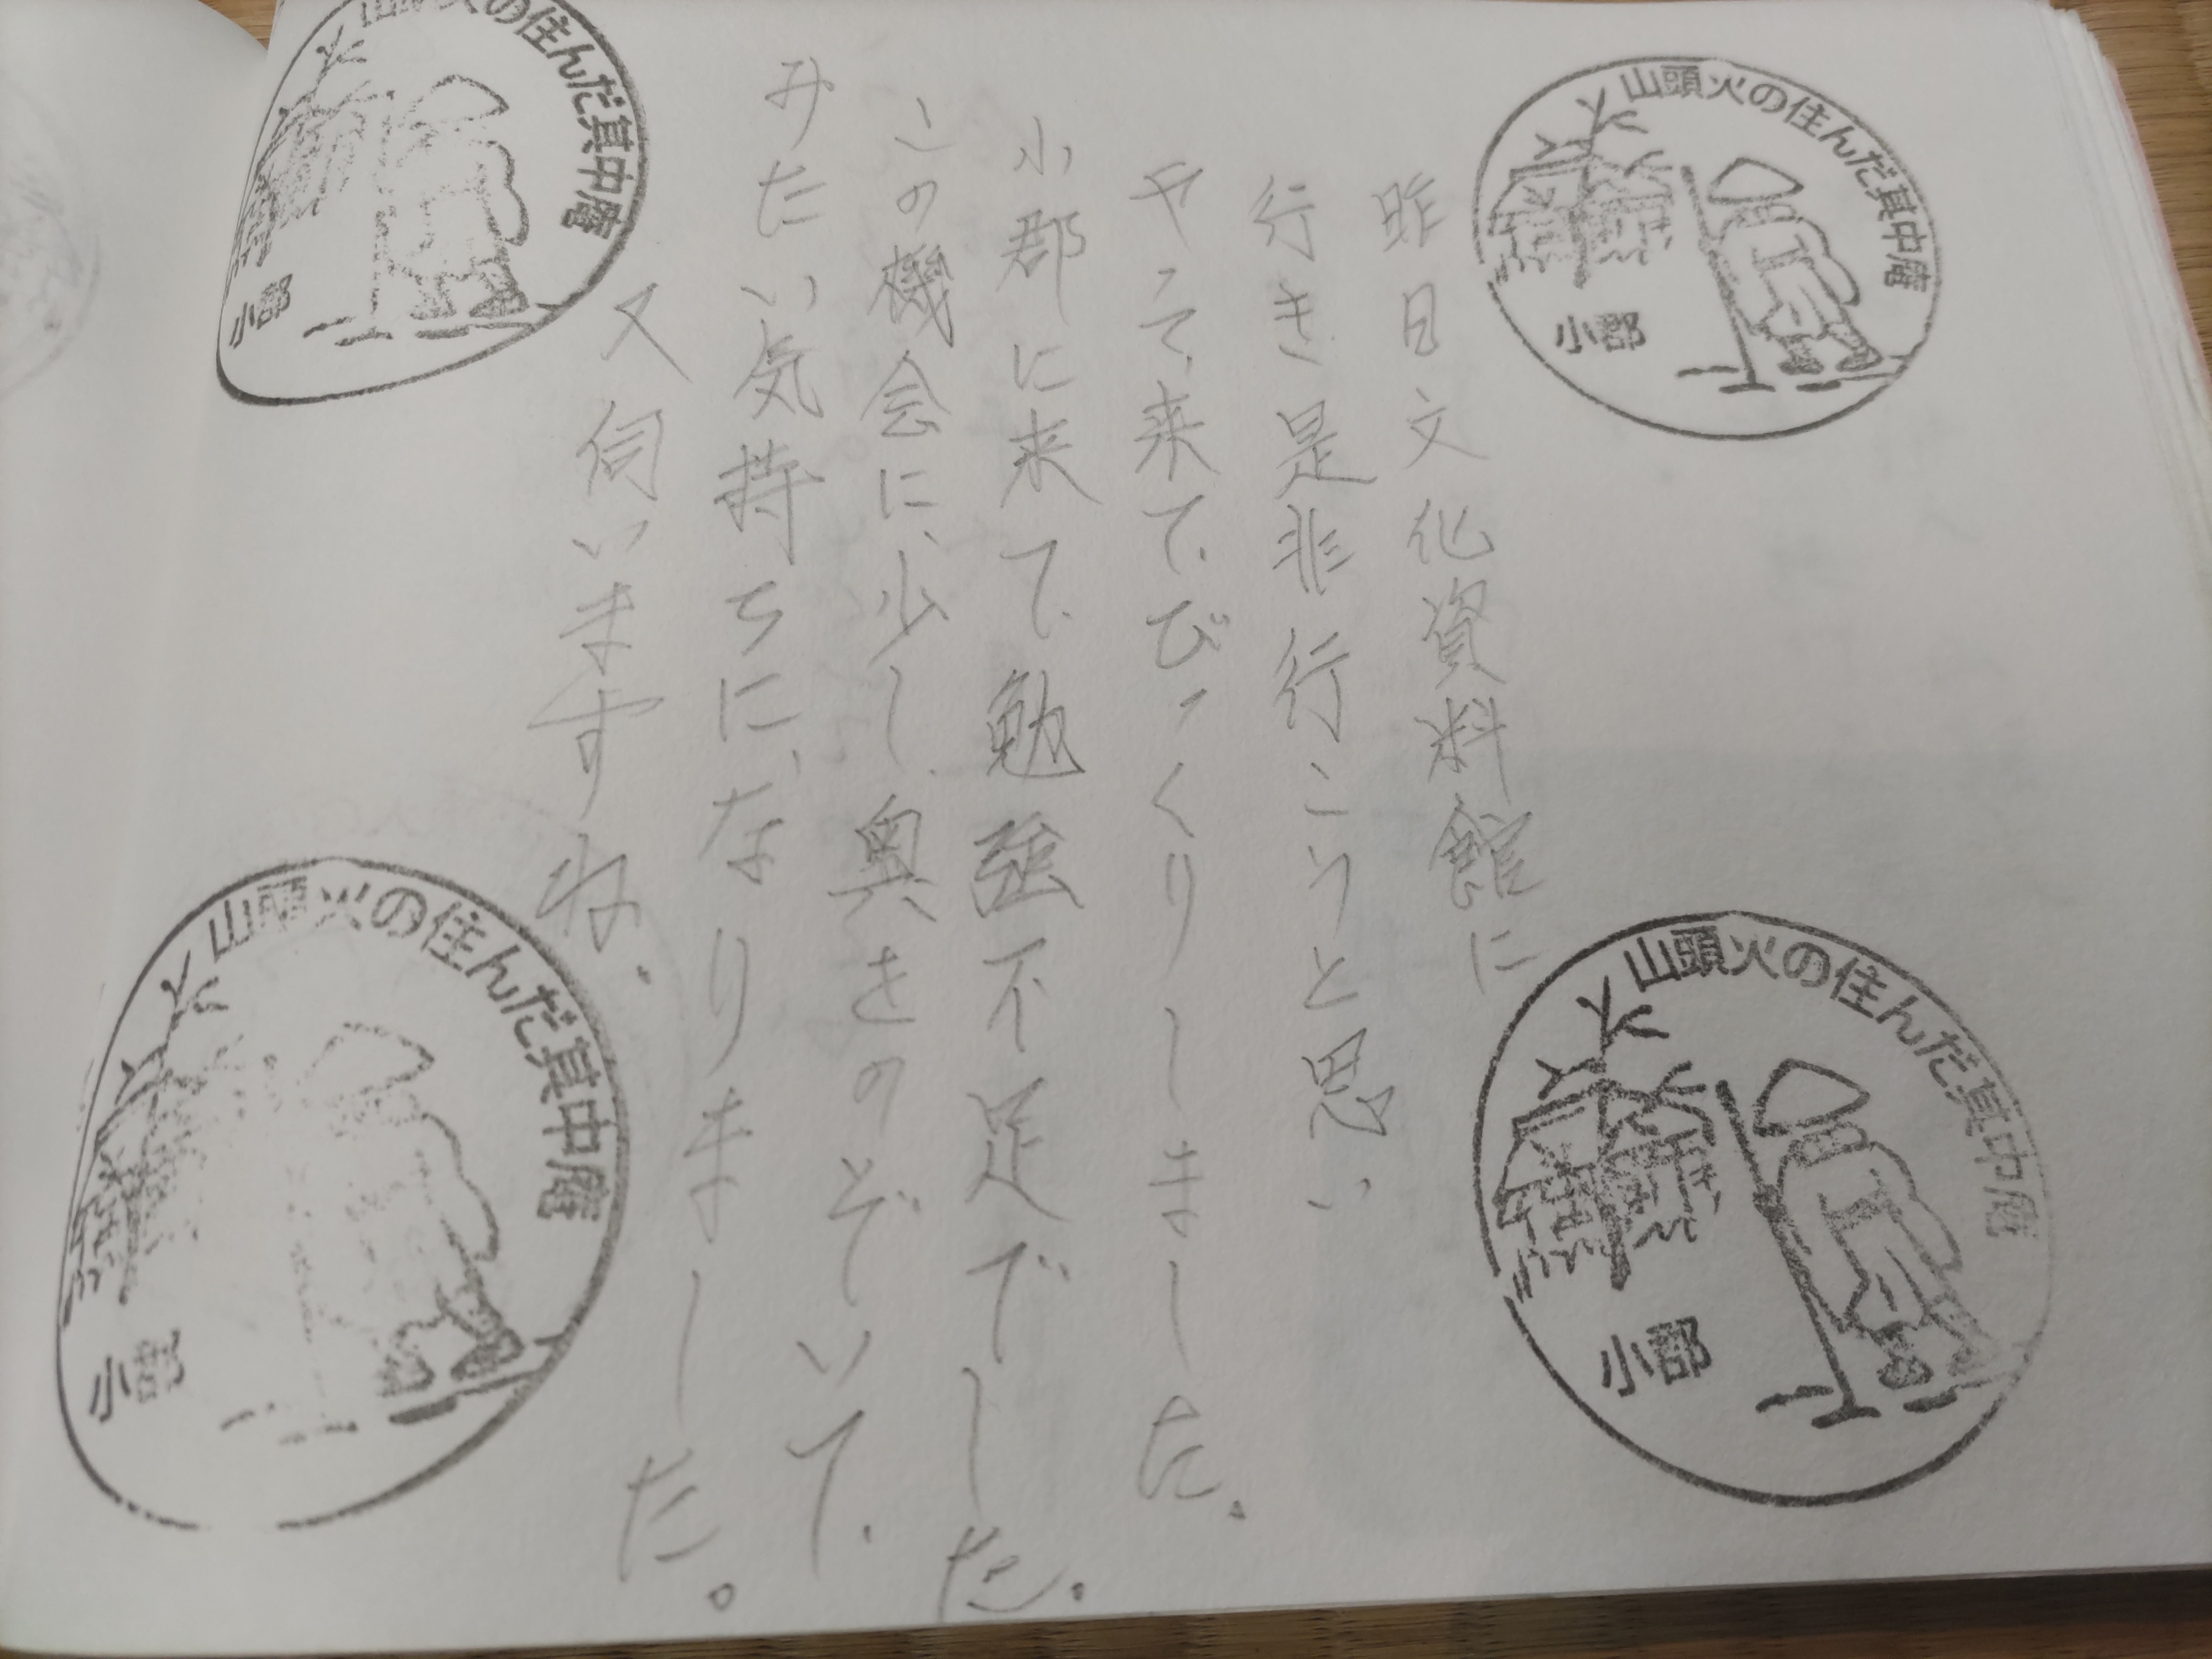 昨日文化資料館に
行き是非行こうと思い
やって来て、びっくりしました。
小郡に来て、勉強不足でした。
この機会に、少し、奥をのぞいて、
みたい気持ちに、なりました。
又伺いますね。
山頭火の住んだ其中庵
小郡
山頭火の住んだ其中庵
小郡
山頭火の住んだ其中庵
小郡
山頭火の住んだ其中庵
小郡